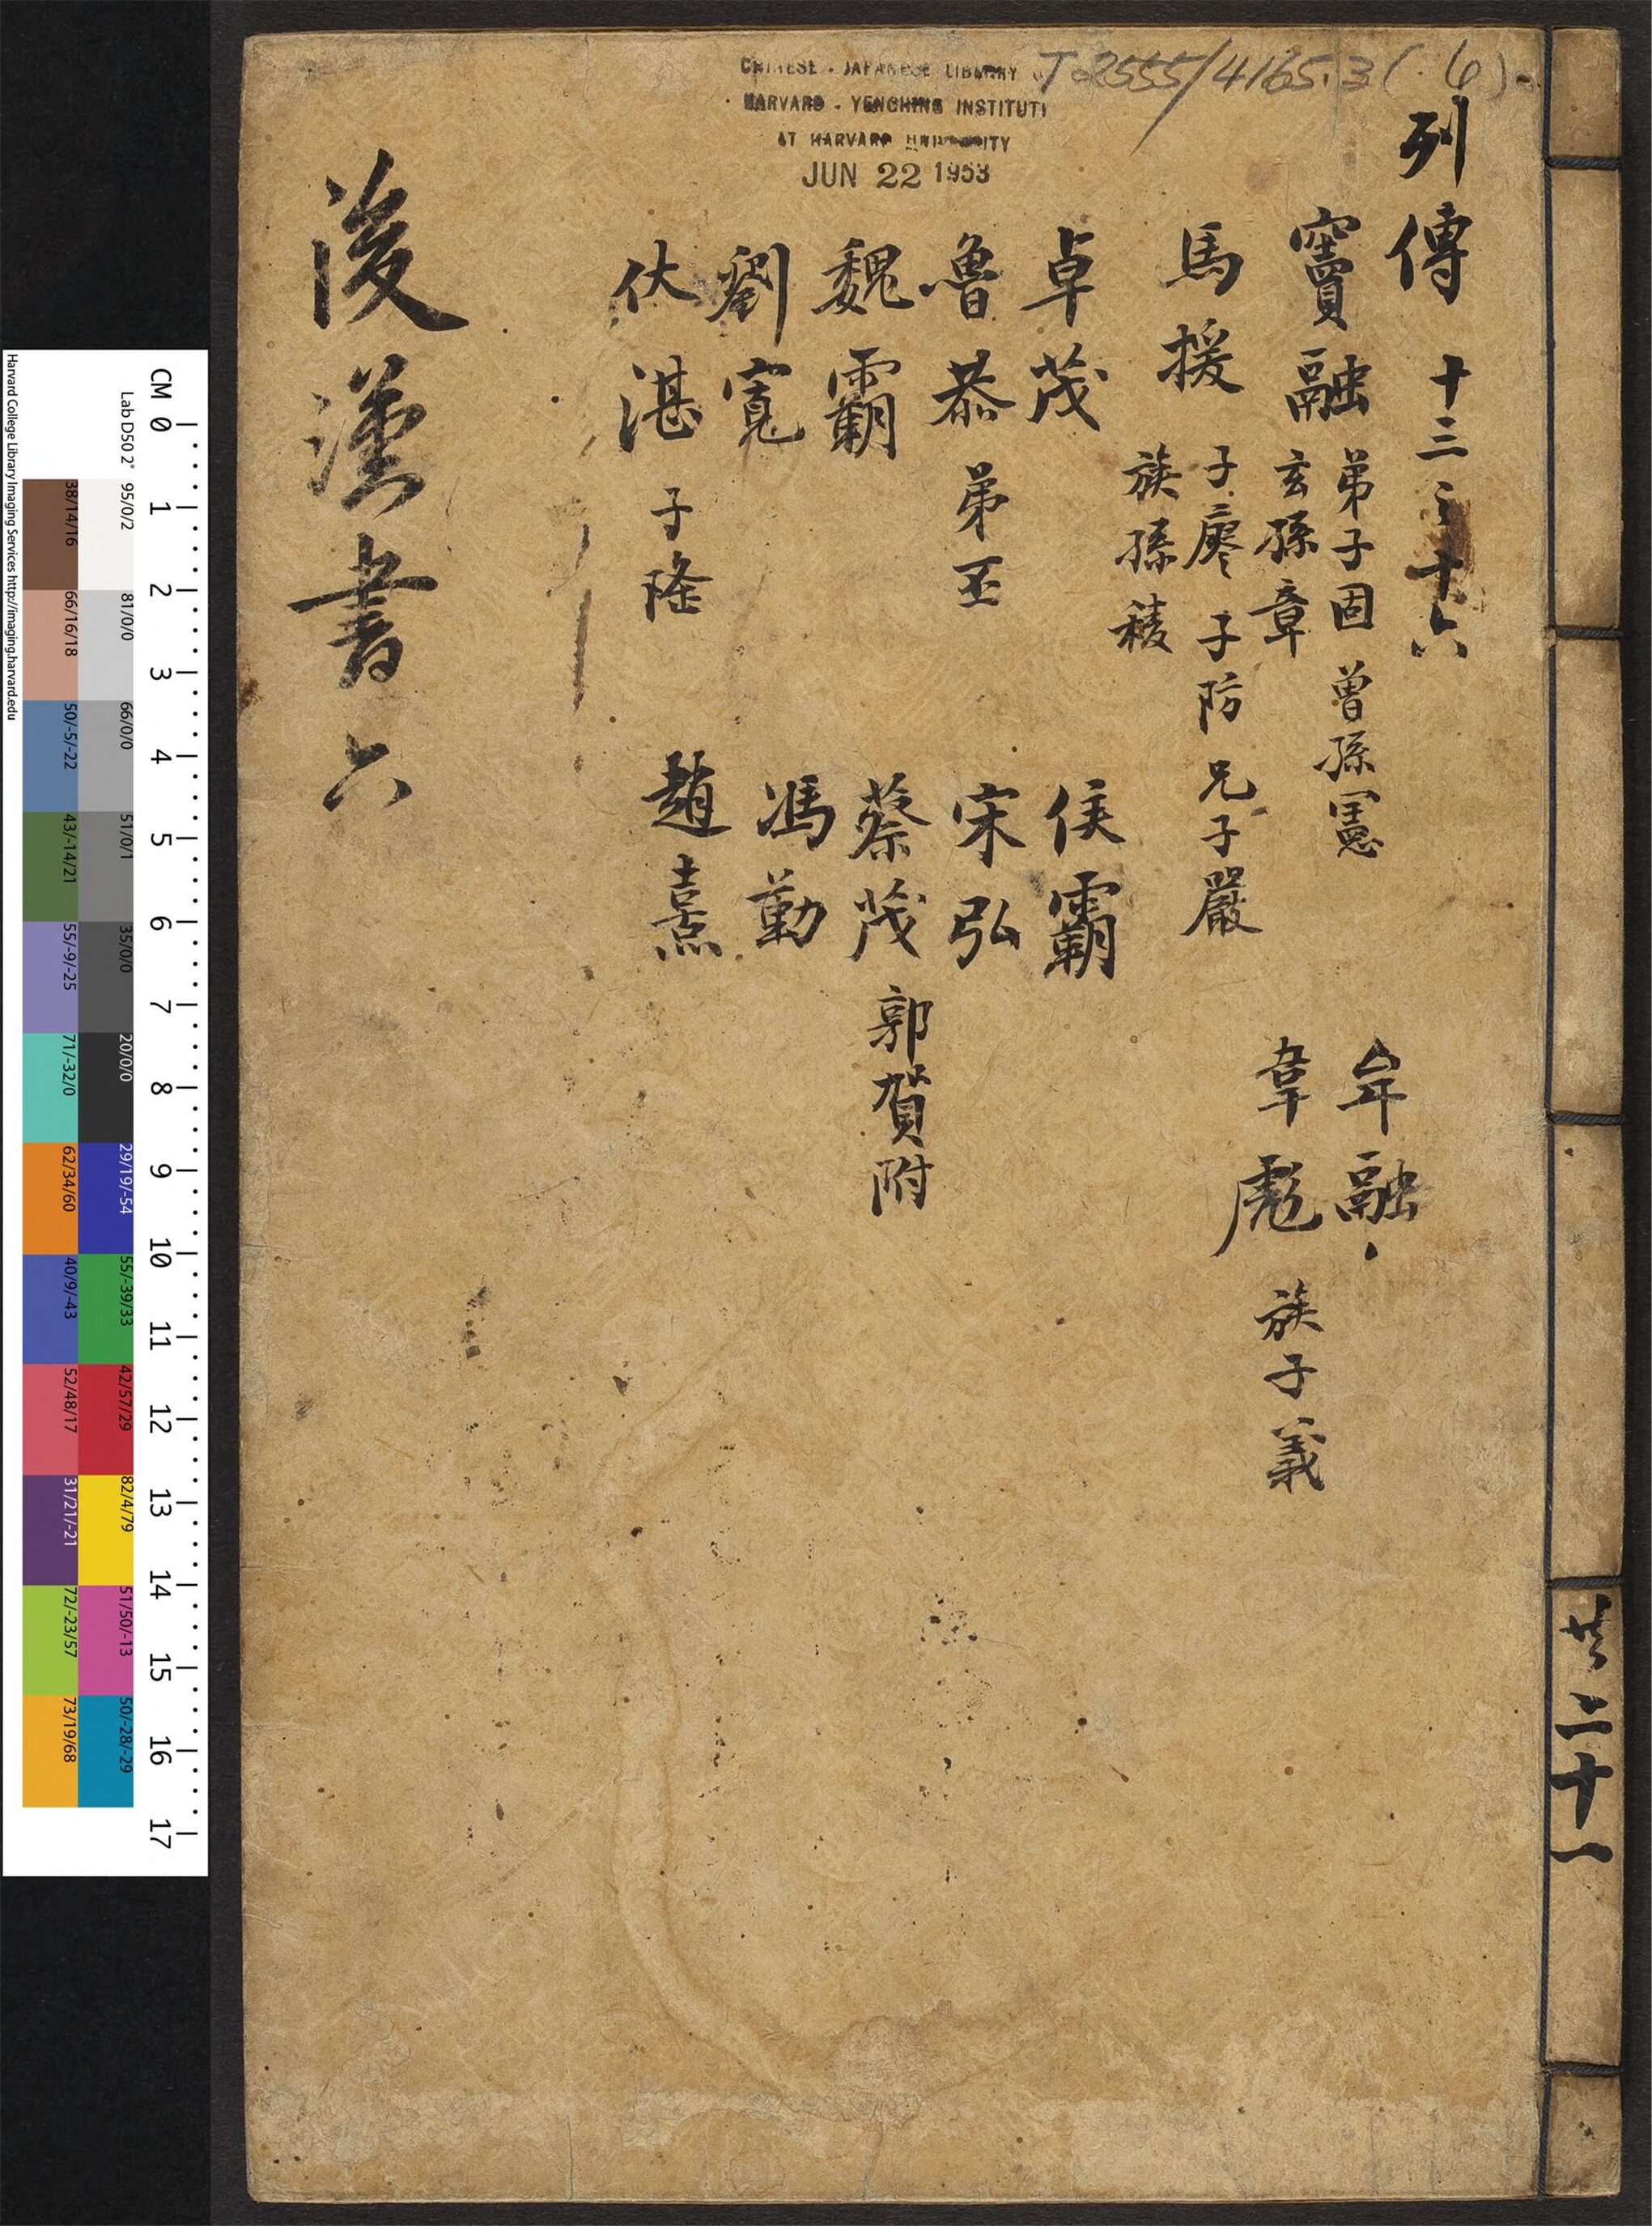 CHINESE - JAPANESE LIBRARY
HARVARD - YENCHING INSTITUTE
AT HARVARD UNIVERSITY
JUN 22 1953
T 2555/4165.3 (6)
列傳 十三之十六
竇融 弟子固 曾孫憲
玄孫章
馬援 子廖 子防 兄子嚴
族孫稜
卓茂
魯恭 弟丕
魏霸
劉寬
伏湛 子隆
侯霸
宋弘
蔡茂 郭賀附
馮勤
趙憙
牟融
韋彪 族子義
後漢書 六
共二十一
CM 0 1 2 3 4 5 6 7 8 9 10 11 12 13 14 15 16 17
Lab D50 2° 95/0/2 81/0/0 66/0/0 51/0/1 35/0/0 20/0/0 29/19/-54 55/-39/33 42/57/29 82/4/79 51/50/-13 50/-28/-29
38/14/16 66/16/18 50/-5/-22 43/-14/21 55/-9/-25 71/-32/0 62/34/60 40/9/-43 52/48/17 31/21/-21 72/-23/57 73/19/68
Harvard College Library Imaging Services http://imaging.harvard.edu